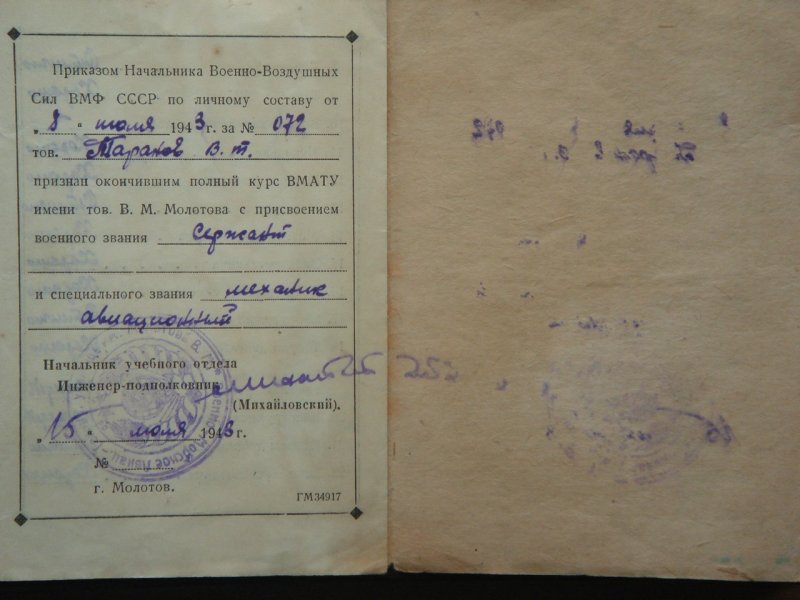 Приказом Начальника Военно-Воздушных
Сил ВМФ СССР по личному составу от
„ 8 “ июля 1943 г. за № 072
тов. Тарахов В. Т.
признан окончившим полный курс ВМАТУ
имени тов. В. М. Молотова с присвоением
военного звания Сержант
и специального звания механик
авиационный
Начальник учебного отдела
Инженер-подполковник
(Михайловский).
„ 15 “ июля 1943 г.
№
г. Молотов.
ГМ34917